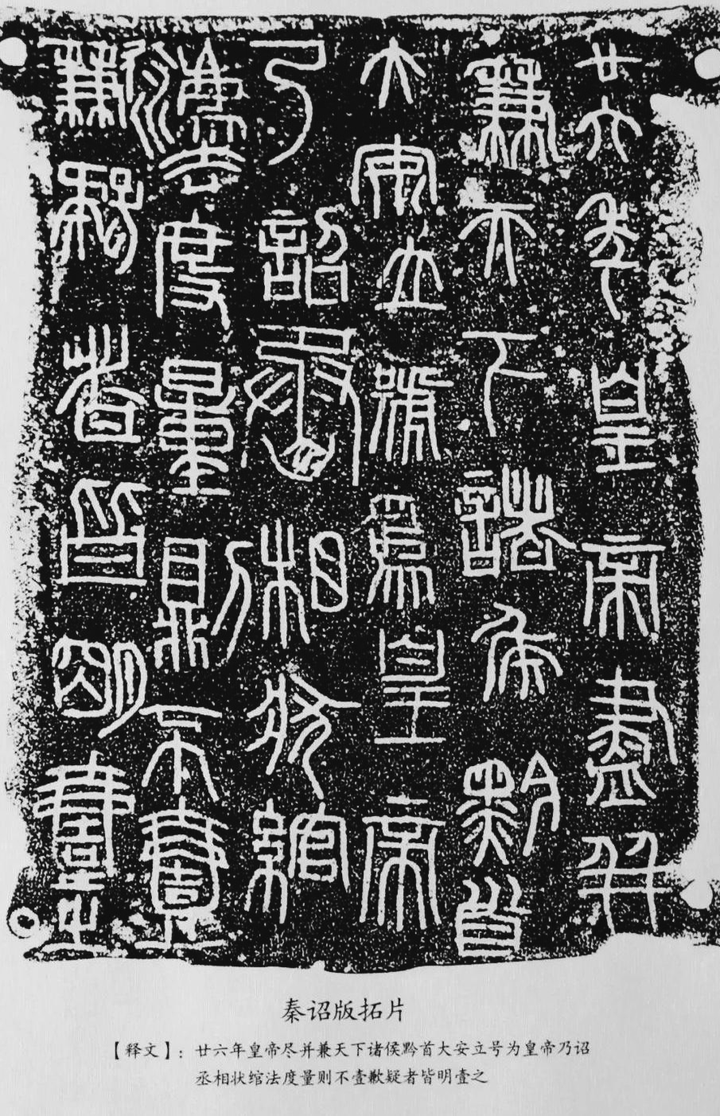 廿六年皇帝盡并
兼天下諸侯黔首
大安立號爲皇帝
乃詔丞相狀綰
灋度量則不壹
歉疑者皆明壹之
秦诏版拓片
【释文】：廿六年皇帝尽并兼天下诸侯黔首大安立号为皇帝乃诏
丞相状绾法度量则不壹歉疑者皆明壹之